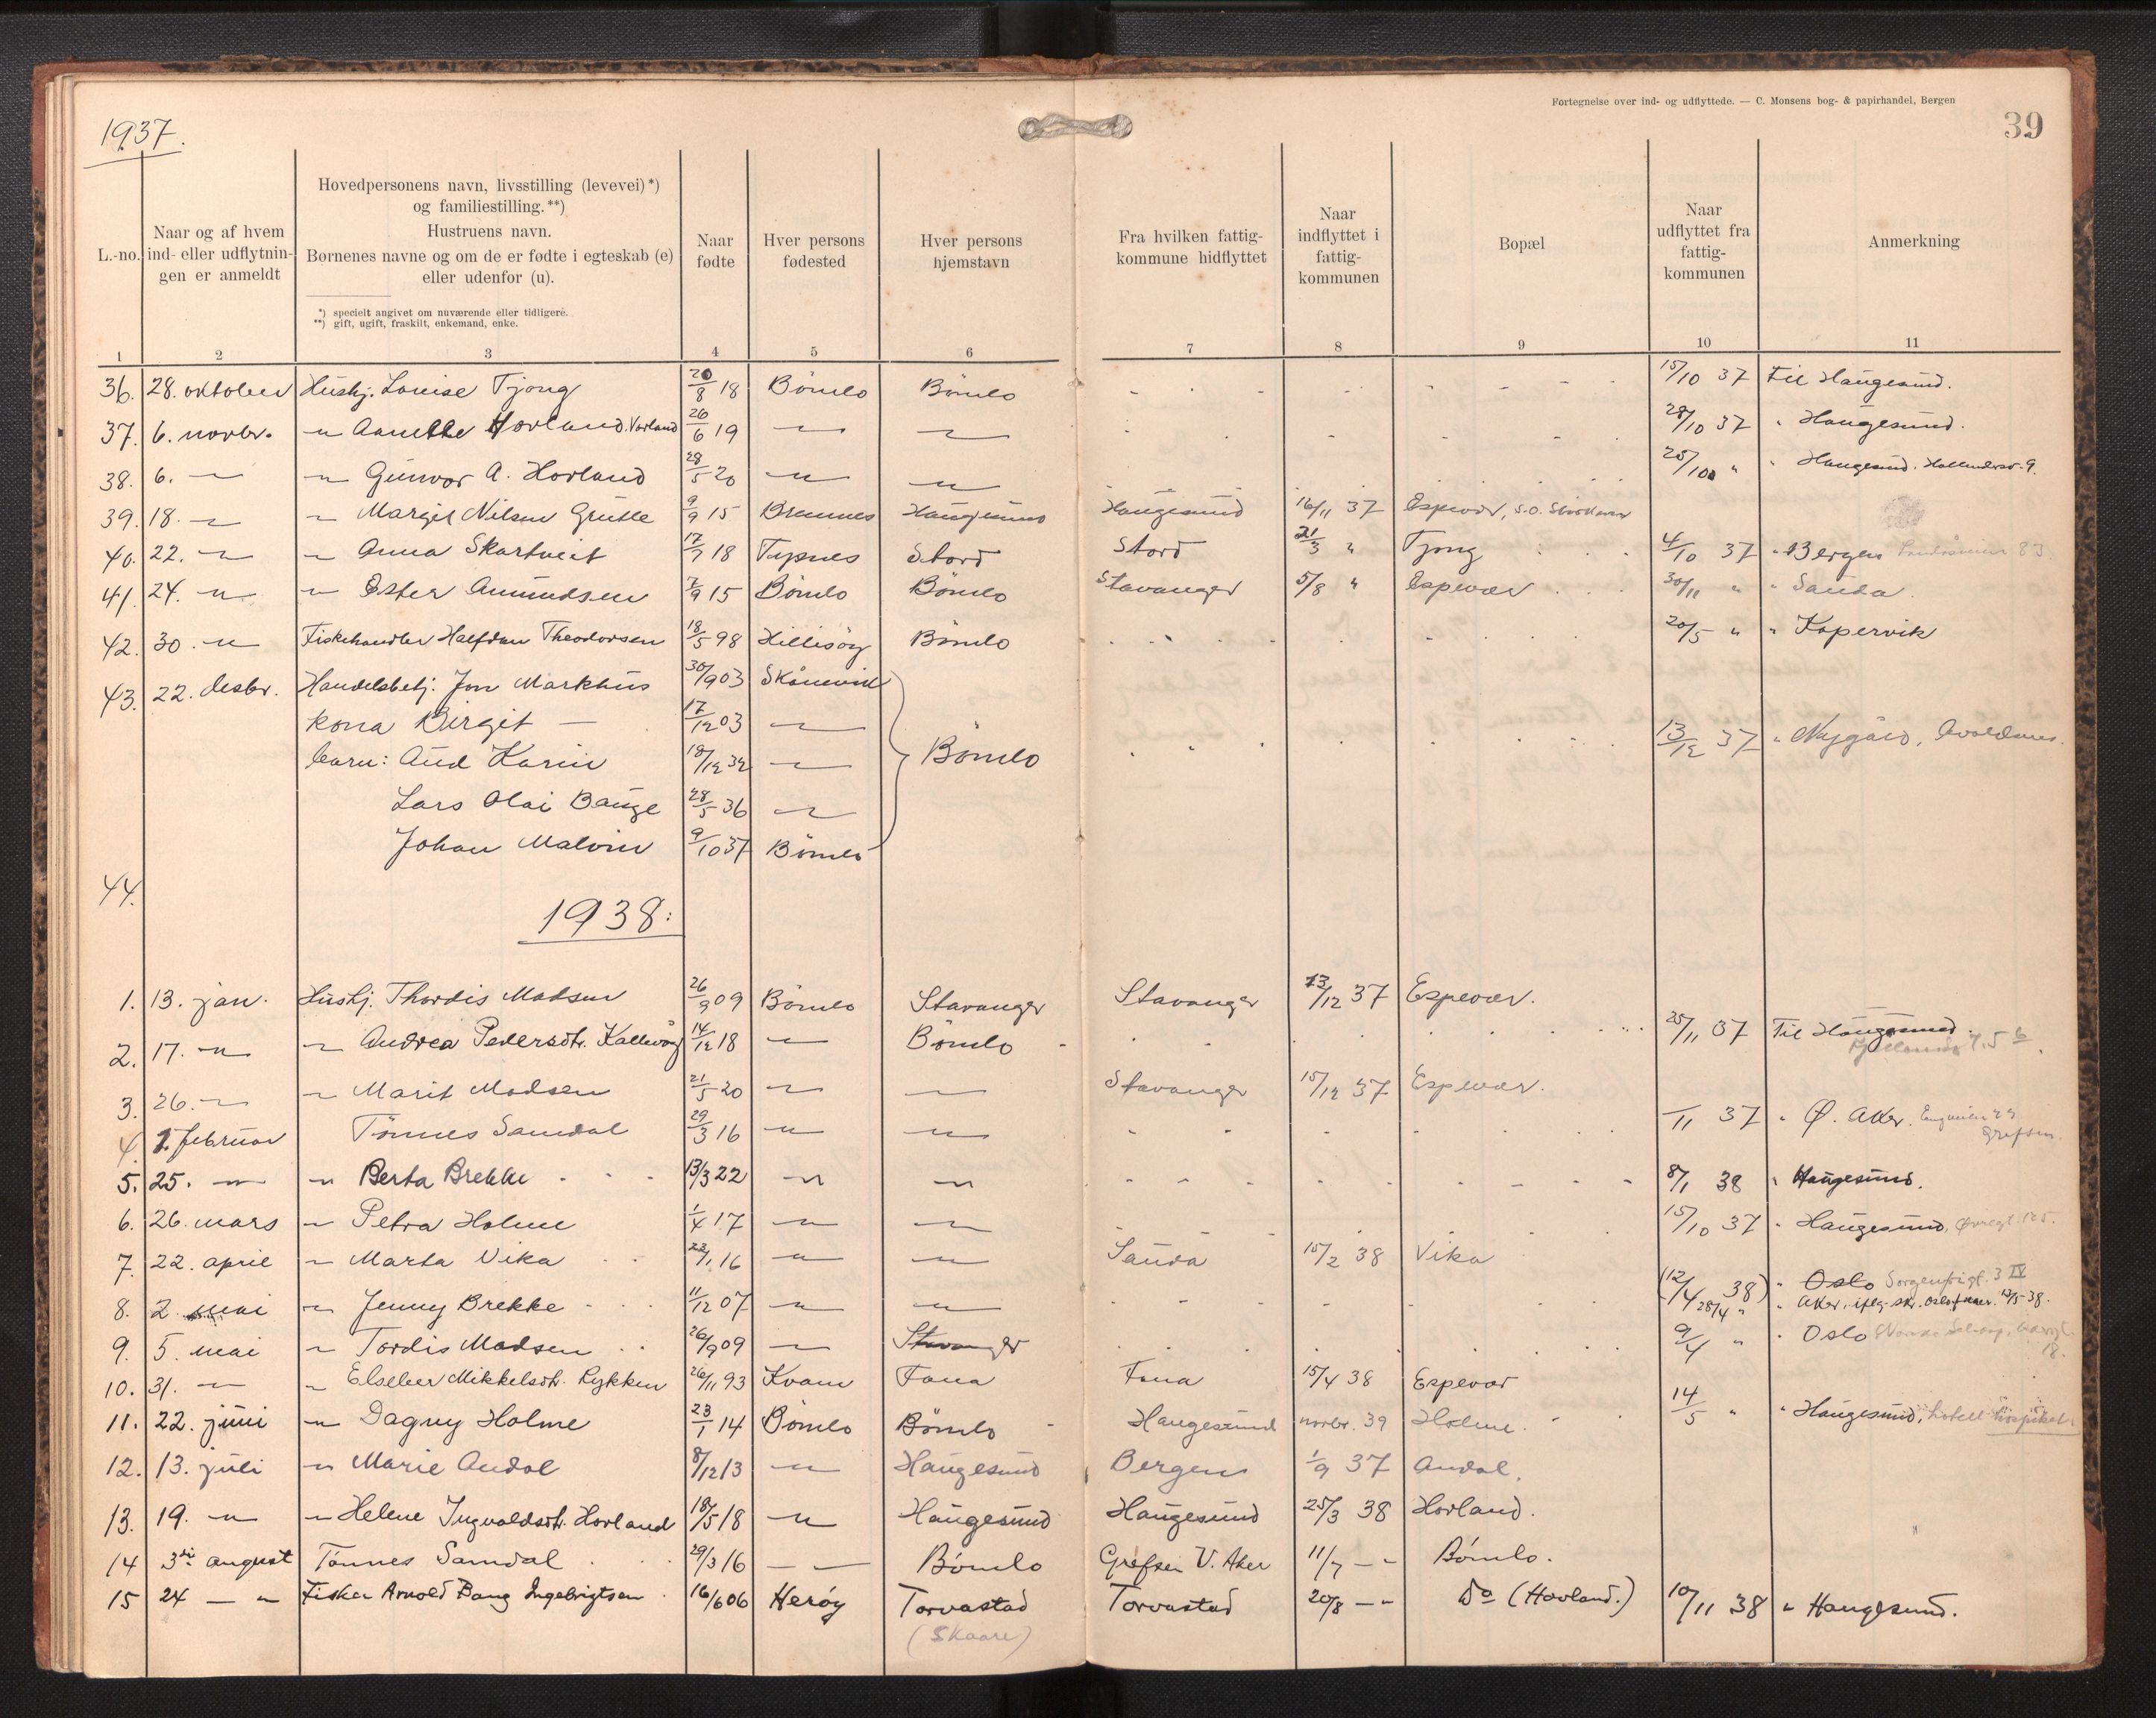 Fortegnelse over ind- og udflyttede. — C. Monsens bog- & papirhandel, Bergen
39
1937.
L.-no.
Naar og af hvem
ind- eller udflytnin-
gen er anmeldt
Hovedpersonens navn, livsstilling (levevei) *)
og familiestilling. **)
Hustruens navn.
Børnenes navne og om de er fødte i egteskab (e)
eller udenfor (u).
*) specielt angivet om nuværende eller tidligere.
**) gift, ugift, fraskilt, enkemand, enke.
Naar
fødte
Hver persons
fødested
Hver persons
hjemstavn
Fra hvilken fattig-
kommune hidflyttet
Naar
indflyttet i
fattig-
kommunen
Bopæl
Naar
udflyttet fra
fattig-
kommunen
Anmerkning
1 2 3 4 5 6 7 8 9 10 11
36. 28. oktober Hushj. Louise Tjong 20/8 18 Bömlo Bömlo 15/10 37 Til Haugesund.
37. 6. novbr. " Anethe Hovland. Vorland 26/6 19 " " 28/10 37 " Haugesund.
38. 6. " " Gunvor A. Hovland 28/5 20 " " 25/10 " " Haugesund. 9.
39. 18. " " Margit Nilsen Grutle 9/9 15 Bremnes Haugesund Haugesund 16/11 37 Espevær, S.O.
40. 22. " " Anna Skartveit 17/7 18 Tysnes Stord Stord 21/3 " Tjong 4/10 37 " Bergen 83
41. 24. " " Ester Amundsen 7/9 15 Bömlo Bömlo Stavanger 5/8 " Espevær 30/11 " " Sauda.
42. 30. " Fiskehandler Halfdan Theodorsen 18/5 98 Hillisöy Bömlo 20/5 " " Kopervik
43. 22. desbr. Handelsbetj. Jon Markhus 30/9 03 Skånevik
kona Birgit — 17/12 03 "
barn: Aud Karin 18/12 32 " Bömlo 13/12 37 " Nygård, Avaldsnes.
Lars Olai Bauge 28/5 36 "
Johan Malvin 9/10 37 Bömlo
44.
1938:
1. 13. jan. Hushj. Thordis Madsen 26/9 09 Bömlo Stavanger Stavanger 13/12 37 Espevær.
2. 17. " " Andrea Pedersdtr. Kallevåg 14/12 18 " Bömlo 25/11 37 Til Haugesund.
7.5 b
3. 26. " " Marit Madsen 21/5 20 " " Stavanger 15/12 37 Espevær.
4. 1. februar Tönnes Samdal 29/3 16 " " /11 37 " Ø. Aker. Engveien 29
Grefsen.
5. 25. " " Berta Brekke 13/3 22 " " 8/1 38 " Haugesund.
6. 26. mars " Petra Holme 1/4 17 " " 15/10 37 " Haugesund, Øvregt. 125.
7. 22. april " Marta Vika 23/1 16 " " Sauda 15/2 38 Vika
8. 2. mai " Jenny Brekke 11/12 07 " " (12/4 38) " Oslo Sorgenfrigt. 3 IV
28/4 " " Aker, iflg. skr. Oslo 12/5-38.
9. 5. mai " Tordis Madsen 26/9 09 " Stavanger 9/4 " " Oslo
18.
10. 31. " " Elseber Mikkelsdtr. Lykken 26/11 93 Kvam Fana Fana 15/4 38 Espevær
11. 22. juni " Dagny Holme 23/1 14 Bömlo Bömlo Haugesund novbr. 39 Holme. 14/5 " " Haugesund, hotell hospitset.
12. 13. juli " Marie Andal 8/12 13 " Haugesund Bergen 1/9 37 Andal.
13. 19. " " Helene Ingvaldsdtr. Hovland 18/5 18 " Haugesund Haugesund 25/3 38 Hovland.
14 3di august Tönnes Samdal 29/3 16 — " — Bömlo Grefsen V. Aker 11/7 — " Bömlo.
15 24 — " Fisker Arnold Bang Ingebrigtsen 16/6 06 Herøy Torvastad Torvastad 20/8 — " Do (Hovland.) 10/11 38 " Haugesund.
(Skaare)